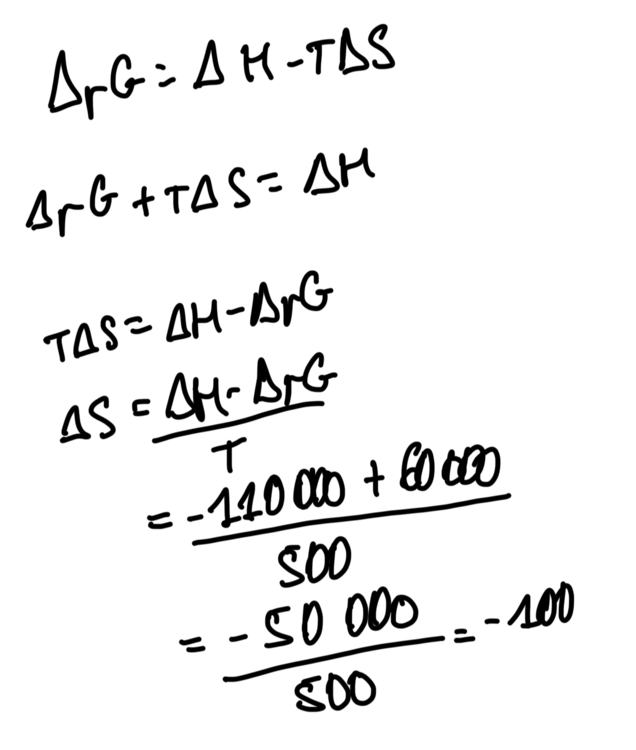 ΔrG = ΔH - TΔS
ΔrG + TΔS = ΔH
TΔS = ΔH - ΔrG
ΔS = (ΔH - ΔrG) / T
= (-110 000 + 60 000) / 500
= (-50 000) / 500 = -100